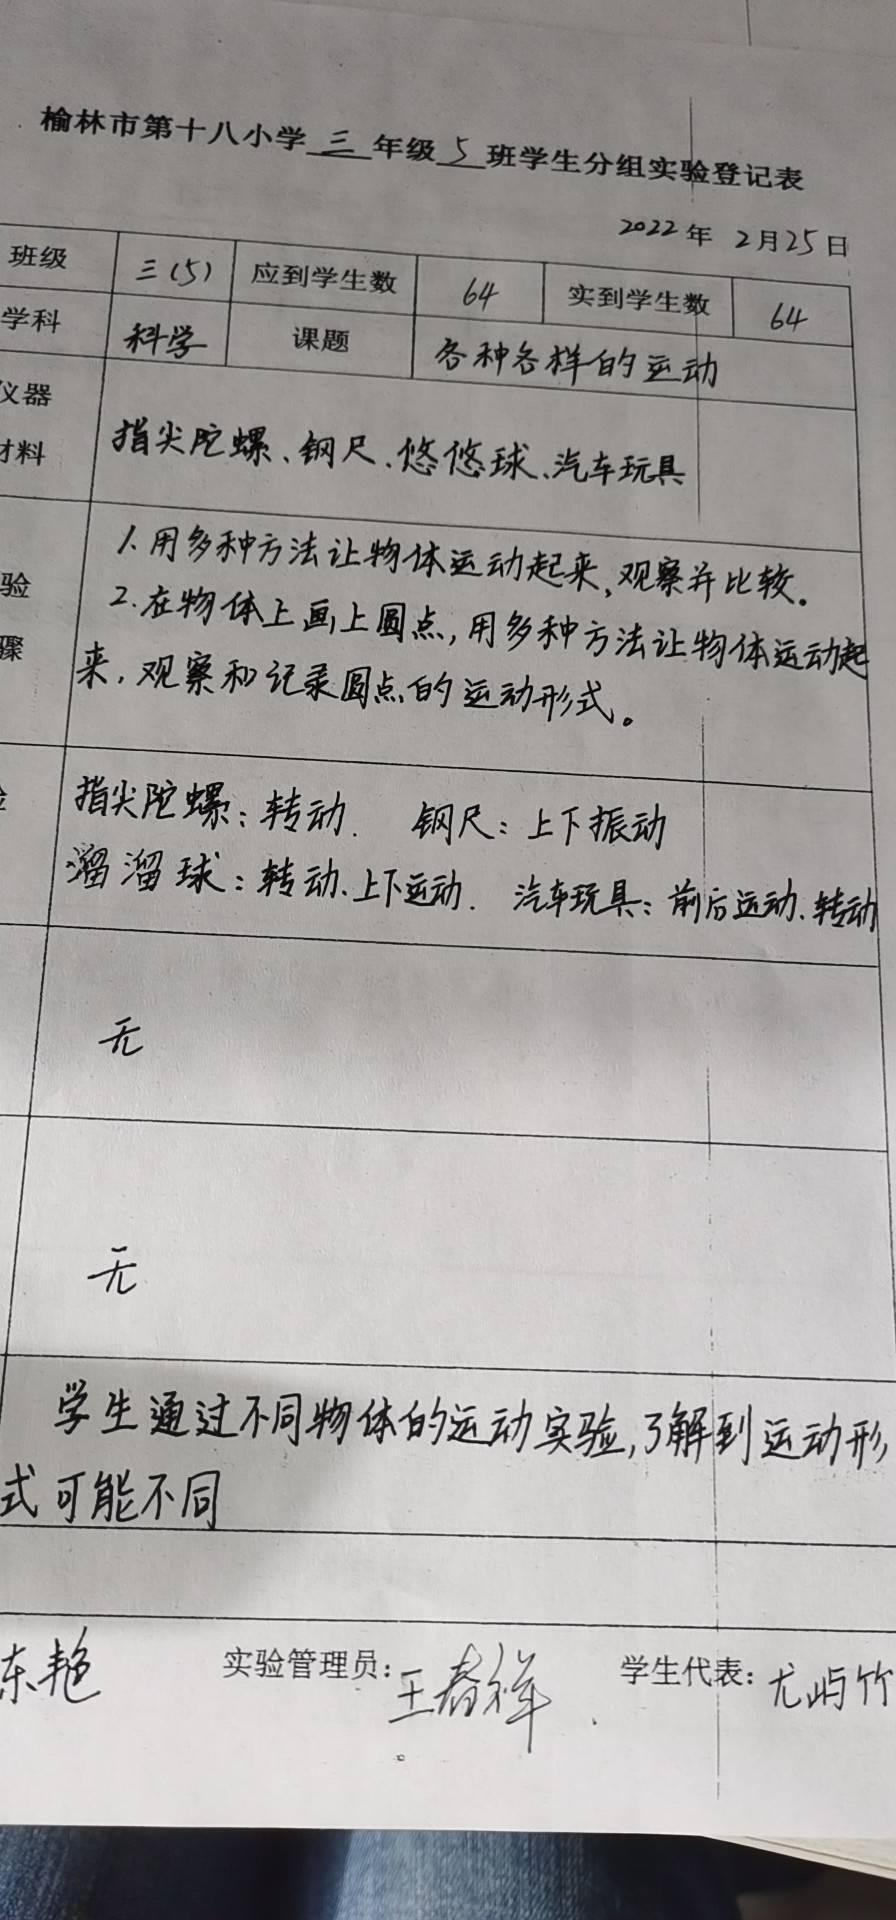 榆林市第十八小学三年级5班学生分组实验登记表
2022年 2月25日
班级 三(5) 应到学生数 64 实到学生数 64
学科 科学 课题 各种各样的运动
仪器
材料
指尖陀螺、钢尺、悠悠球、汽车玩具
验
骤
1.用多种方法让物体运动起来,观察并比较。
2.在物体上画上圆点,用多种方法让物体运动起
来,观察和记录圆点的运动形式。
指尖陀螺:转动. 钢尺:上下振动
溜溜球:转动、上下运动. 汽车玩具:前后运动、转动
无
无
学生通过不同物体的运动实验,了解到运动形
式可能不同
艳 实验管理员:王春祥 学生代表:尤屿竹